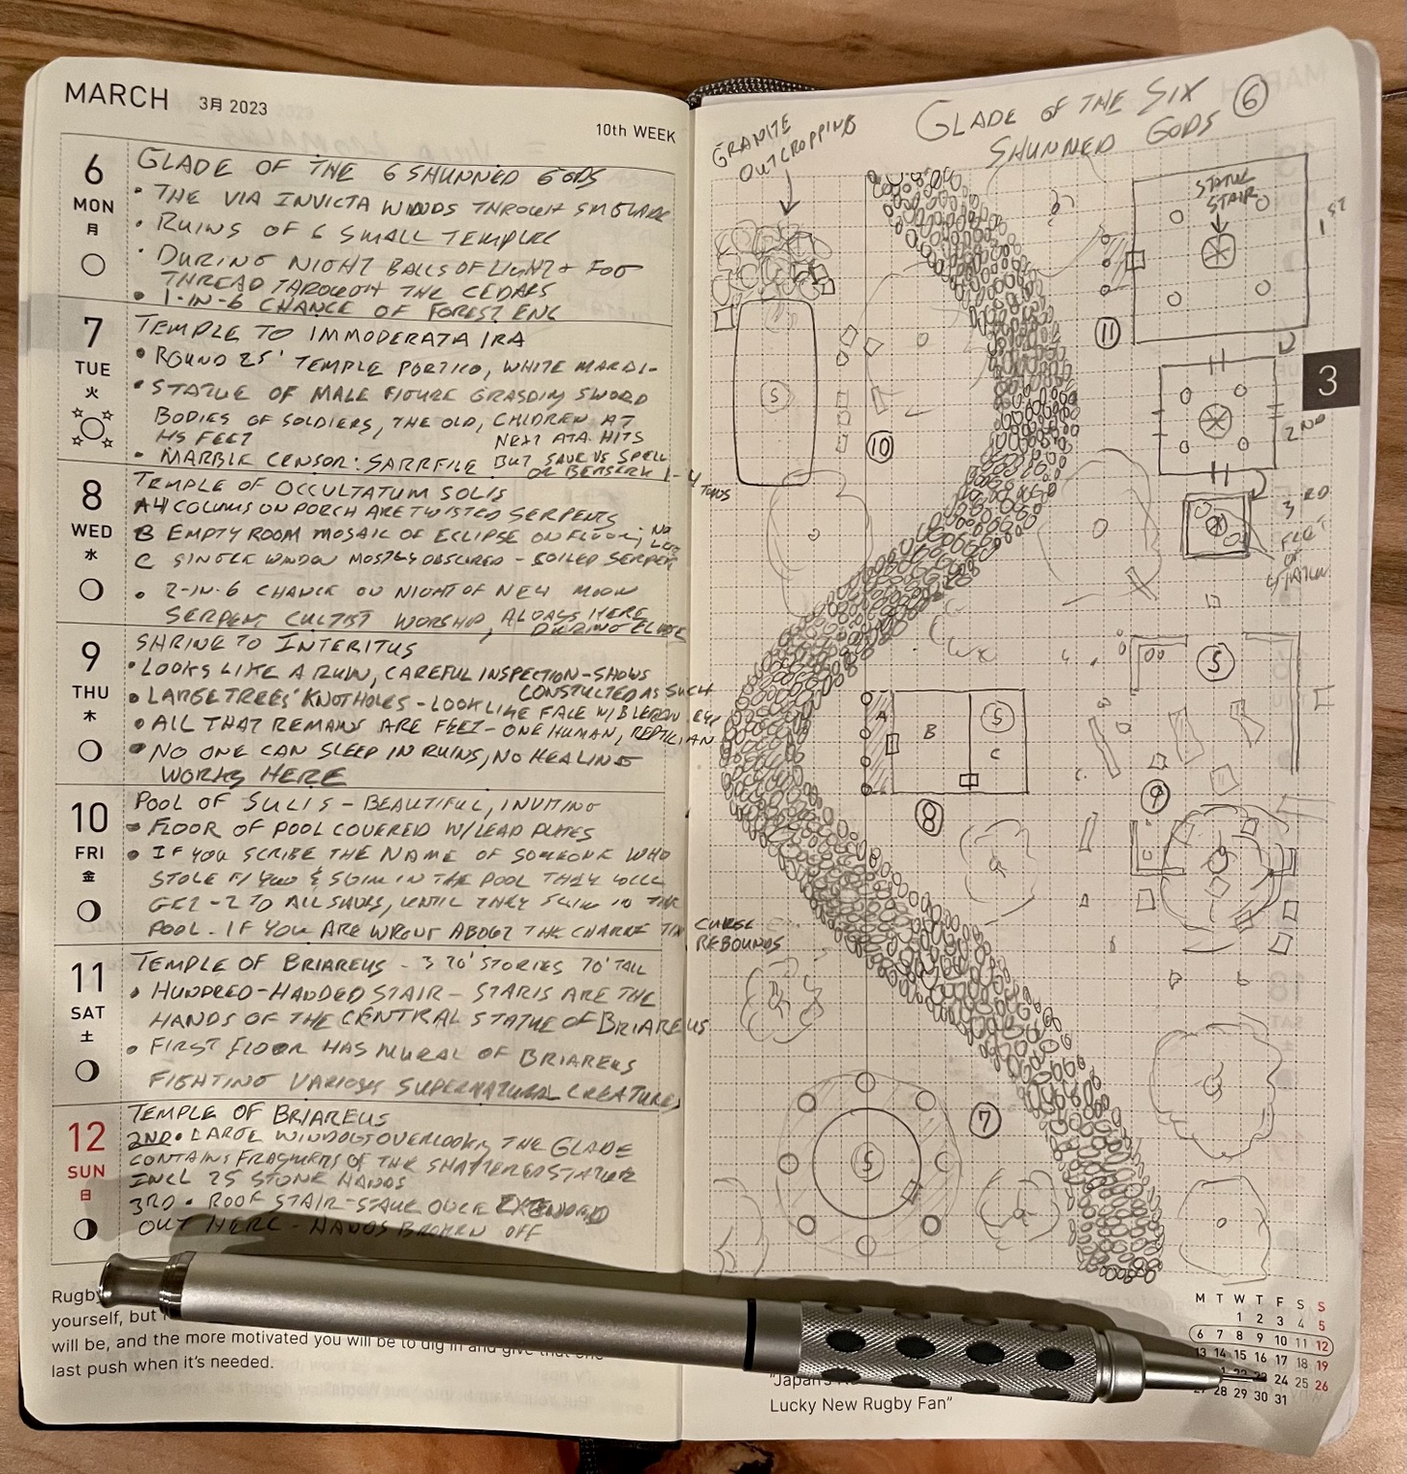 MARCH 3月 2023
10th WEEK
6
MON
月
GLADE OF THE 6 SHUNNED GODS
• THE VIA INVICTA WINDS THROUGH SM GLADE
• RUINS OF 6 SMALL TEMPLES
• DURING NIGHT BALLS OF LIGHT + FOG
THREAD THROUGH THE CEDARS
• 1-IN-6 CHANCE OF FOREST ENC
7
TUE
火
TEMPLE TO IMMODERATA IRA
• ROUND 25' TEMPLE PORTICO, WHITE MARBL-
• STATUE OF MALE FIGURE GRASPING SWORD
BODIES OF SOLDIERS, THE OLD, CHILDREN AT
HIS FEET
NEXT ATA HITS
• MARBLE CENSOR: SACRIFICE BUT SAVE VS SPELL
OR BERSERK 1-4
TURNS
8
WED
水
TEMPLE OF OCCULTATUM SOLIS
A 4 COLUMNS ON PORCH ARE TWISTED SERPENTS
B EMPTY ROOM MOSAIC OF ECLIPSE ON FLOOR, NO
C SINGLE WINDOW MOSTLY OBSCURED - COILED SERPENT
• 2-IN-6 CHANCE ON NIGHT OF NEW MOON
SERPENT CULTIST WORSHIP, ALWAYS HERE
DURING ECLIPSE
9
THU
木
SHRINE TO INTERITUS
• LOOKS LIKE A RUIN, CAREFUL INSPECTION-SHOWS
CONSTUCTED AS SUCH
• LARGE TREES' KNOTHOLES - LOOK LIKE FACE W/
• ALL THAT REMAINS ARE FEET - ONE HUMAN, REPTILIAN
• NO ONE CAN SLEEP IN RUINS, NO HEALING
WORKS HERE
10
FRI
金
POOL OF SULIS - BEAUTIFUL, INVITING
• FLOOR OF POOL COVERED W/LEAD PLATES
• IF YOU SCRIBE THE NAME OF SOMEONE WHO
STOLE F/ YOU & SWIM IN THE POOL THEY WILL
GET -2 TO ALL SAVES, UNTIL THEY SWIM IN THE
POOL. IF YOU ARE WRONG ABOUT THE CHARGE THE
CURSE
REBOUNDS
11
SAT
土
TEMPLE OF BRIAREUS - 3 20' STORIES 70' TALL
• HUNDRED-HANDED STAIR - STARIS ARE THE
HANDS OF THE CENTRAL STATUE OF BRIAREUS
• FIRST FLOOR HAS MURAL OF BRIAREUS
FIGHTING VARIOUS SUPERNATURAL CREATURES
12
SUN
日
TEMPLE OF BRIAREUS
2ND • LARGE WINDOWS OVERLOOKING THE GLADE
CONTAINS FRAGMENTS OF THE SHATTERED STATUE
INCL 25 STONE HANDS
3RD • ROOF STAIR-STATUE ONCE EXTENDED
OUT HERE - HANDS BROKEN OFF
Rugby
yourself, but
will be, and the more motivated you will be to dig in and give that one
last push when it's needed.
GLADE OF THE SIX 6
SHUNNED GODS
GRANITE
OUTCROPPING
STATUE
STAIR
1ST
11
D
3
S
10
2ND
D
3RD
FEET
OF
STATUE
S
A
B
S
C
8
9
7
S
"Japan's
Lucky New Rugby Fan"
M T W T F S S
1 2 3 4 5
6 7 8 9 10 11 12
13 14 15 16 17 18 19
24 25 26
28 29 30 31